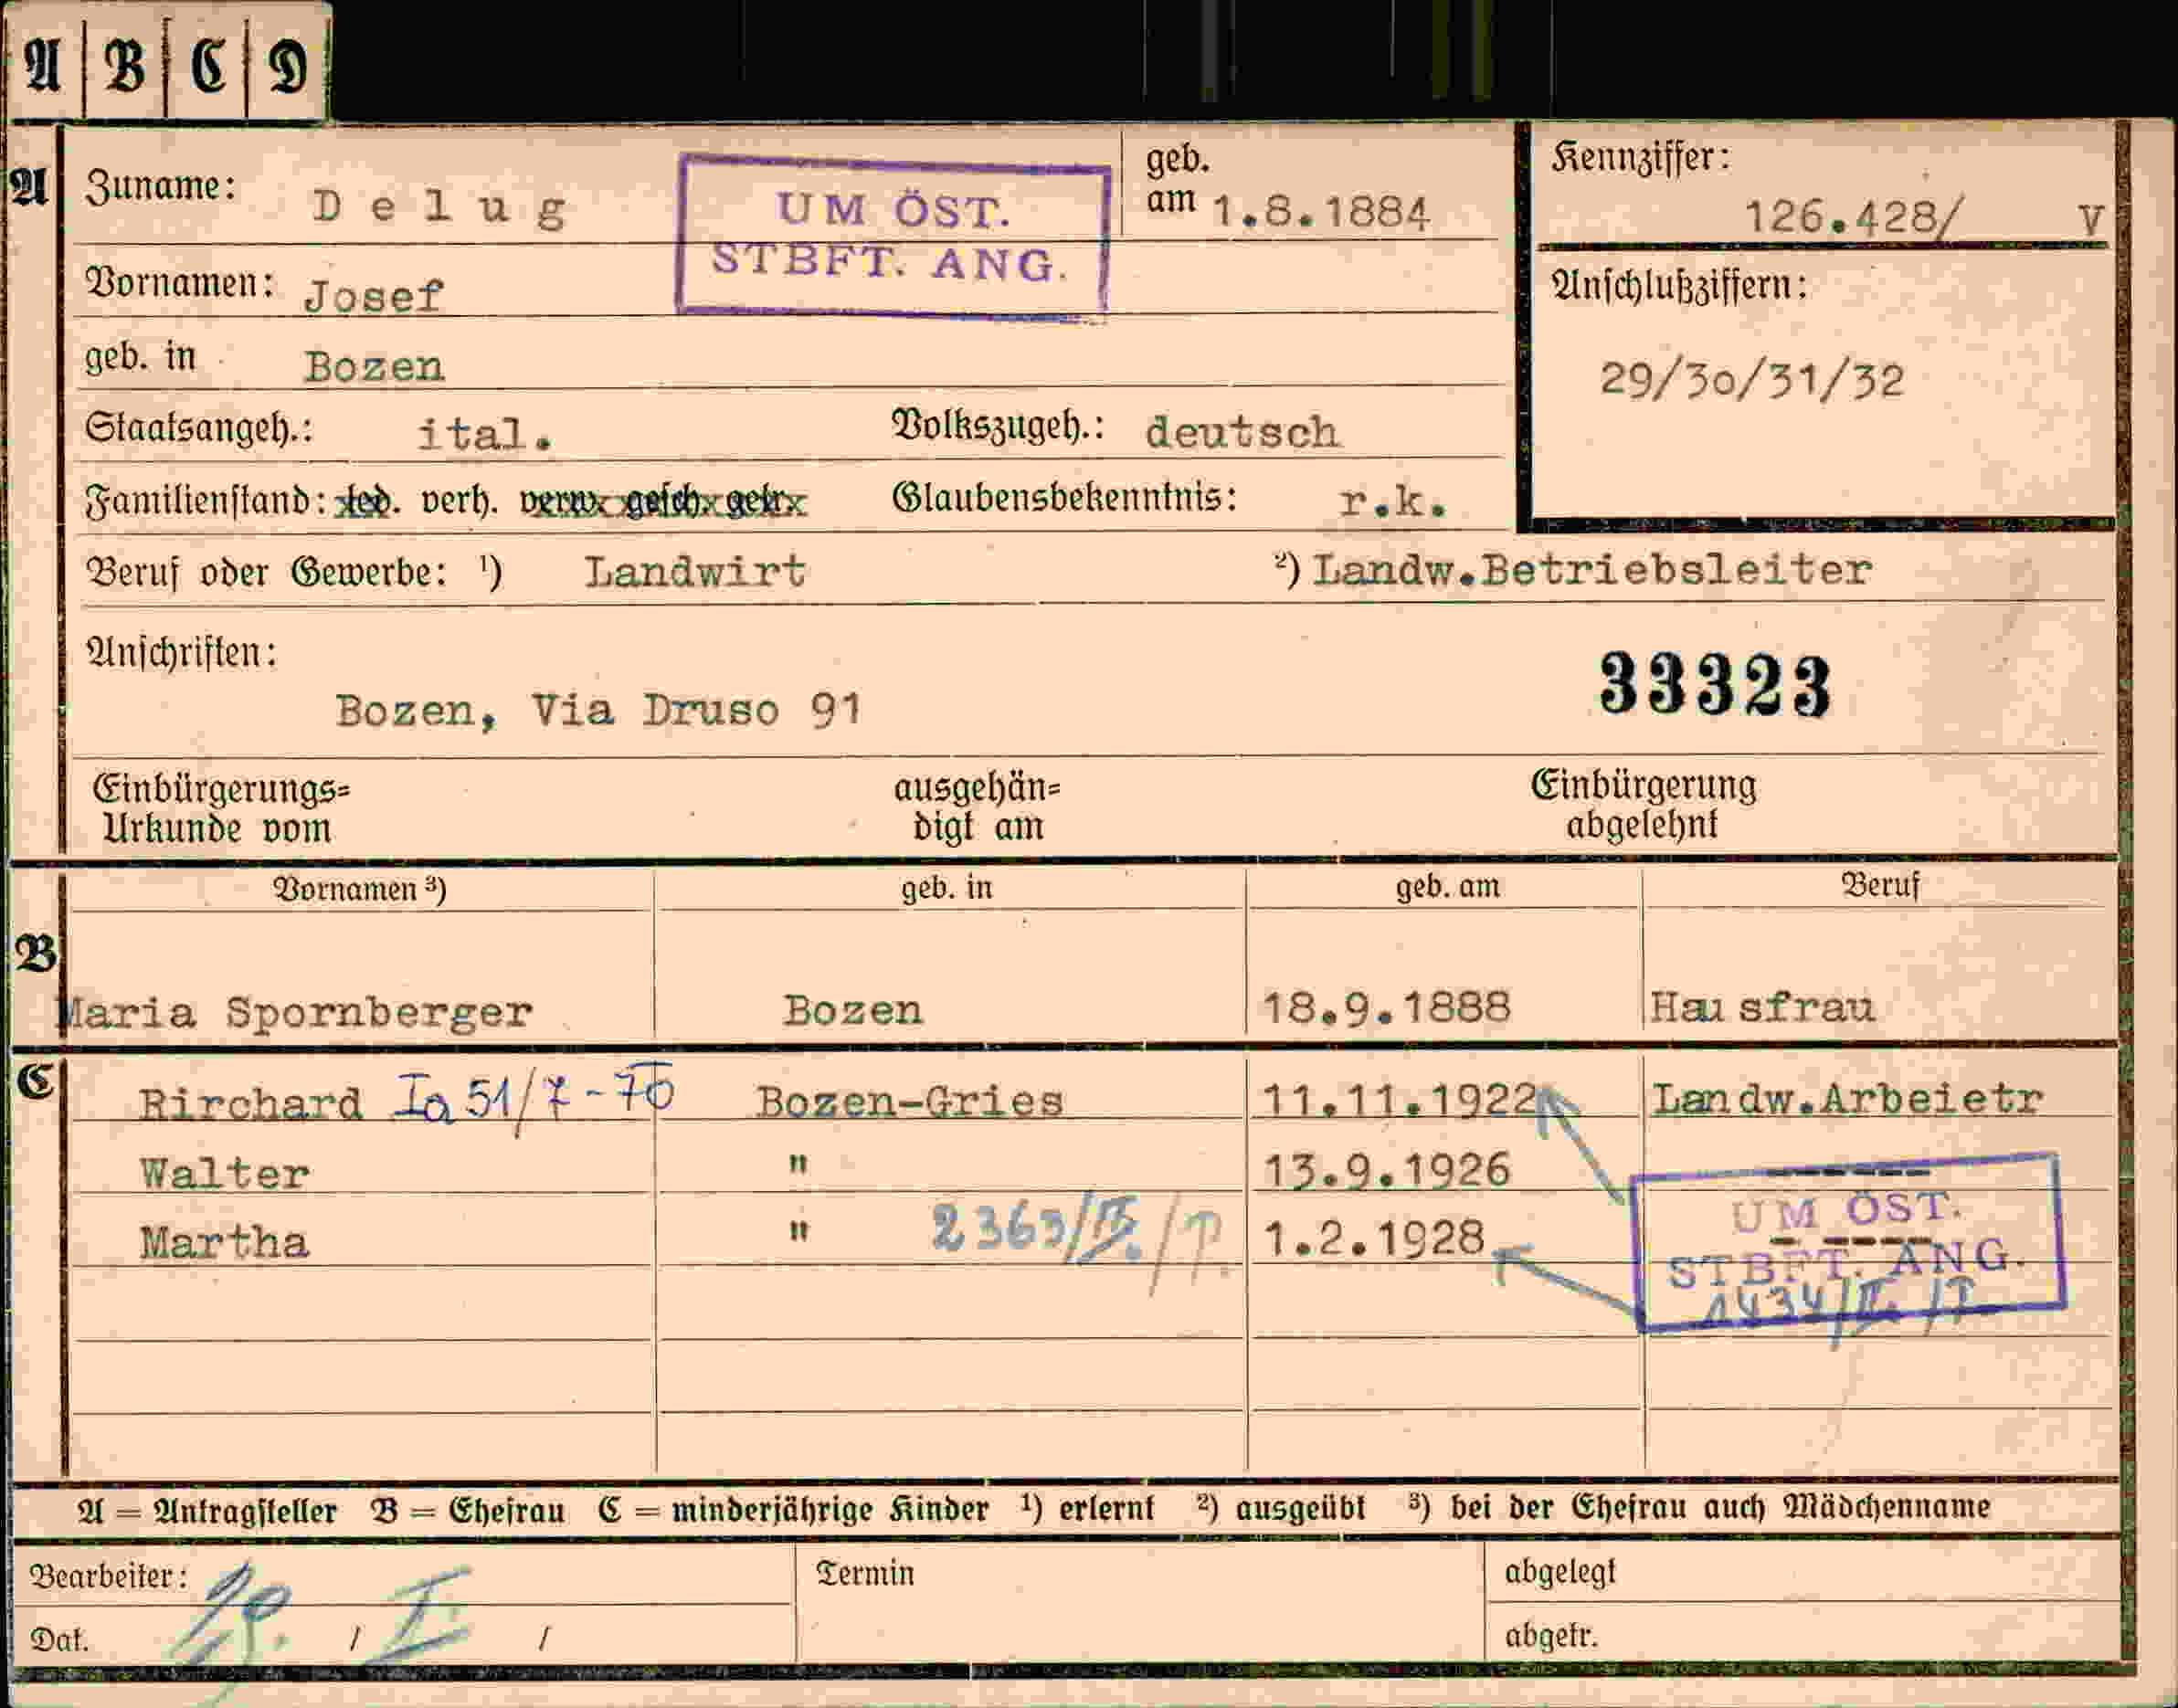 A | B | C | D
A Zuname: Delug
UM ÖST.
STBFT. ANG.
geb.
am 1.8.1884
Kennziffer:
126.428/ V
Vornamen: Josef
Anschlußziffern:
29/30/31/32
geb. in Bozen
Staatsangeh.: ital. Volkszugeh.: deutsch
Familienstand: led. verh. verw. gesch. getr. Glaubensbekenntnis: r.k.
Beruf oder Gewerbe: ¹) Landwirt ²) Landw.Betriebsleiter
Anschriften:
33323
Bozen, Via Druso 91
Einbürgerungs=
Urkunde vom
ausgehän=
digt am
Einbürgerung
abgelehnt
Vornamen ³) geb. in geb. am Beruf
B
Maria Spornberger Bozen 18.9.1888 Hausfrau
C
Rirchard Ia 51/7-70 Bozen-Gries 11.11.1922 Landw.Arbeietr
Walter " 13.9.1926 ------
Martha " 1.2.1928
UM ÖST.
STBFT. ANG.
A = Antragsteller B = Ehefrau C = minderjährige Kinder ¹) erlernt ²) ausgeübt ³) bei der Ehefrau auch Mädchenname
Bearbeiter: Termin abgelegt
Dat. / I / abgetr.